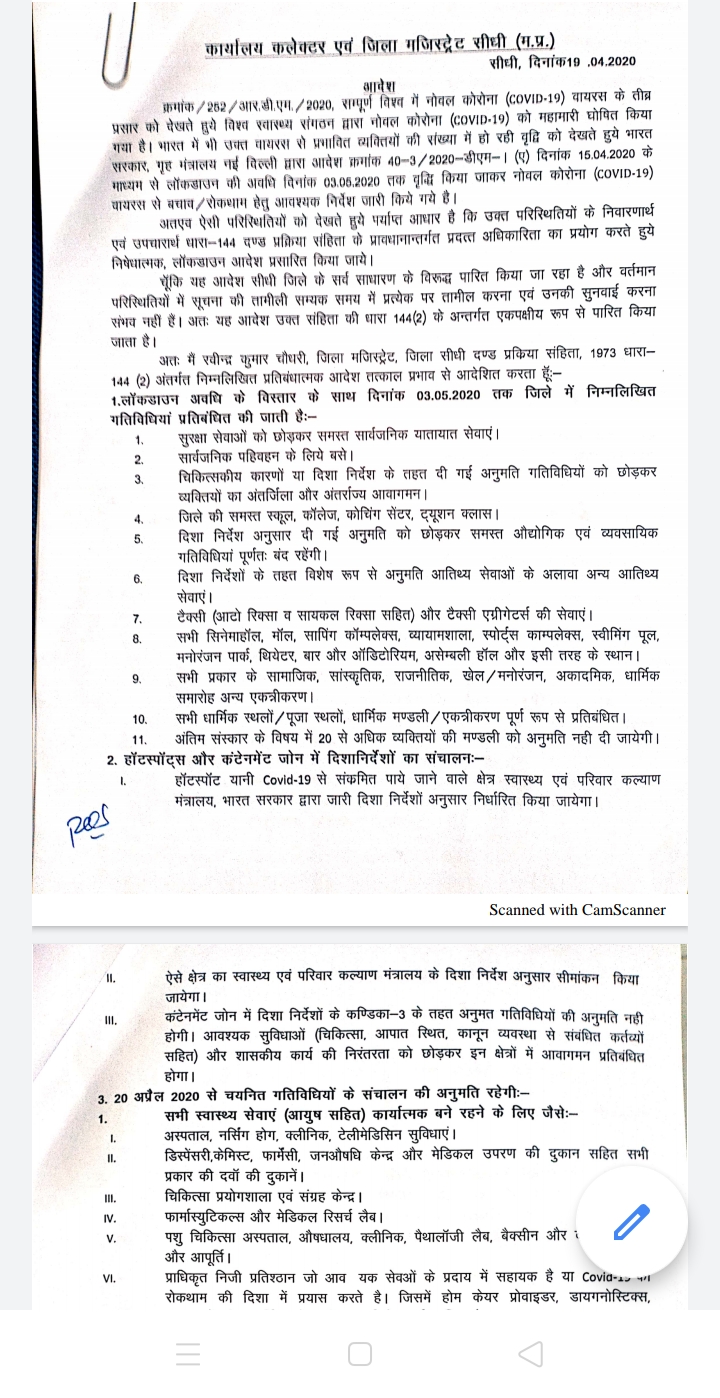 कार्यालय कलेक्टर एवं जिला मजिस्ट्रेट सीधी (म.प्र.)
सीधी, दिनांक19 .04.2020
आदेश
क्रमांक/262/आर.डी.एम./2020, सम्पूर्ण विश्व में नोवल कोरोना (COVID-19) वायरस के तीव्र
प्रसार को देखते हुये विश्व स्वास्थ्य संगठन द्वारा नोवल कोरोना (COVID-19) को महामारी घोषित किया
गया है। भारत में भी उक्त वायरस से प्रभावित व्यक्तियों की संख्या में हो रही वृद्वि को देखते हुये भारत
सरकार, गृह मंत्रालय नई दिल्ली द्वारा आदेश क्रमांक 40-3/2020-डीएम-। (ए) दिनांक 15.04.2020 के
माध्यम से लॉकडाउन की अवधि दिनांक 03.05.2020 तक वृद्वि किया जाकर नोवल कोरोना (COVID-19)
वायरस से बचाव/रोकथाम हेतु आवश्यक निर्देश जारी किये गये है।
अतएव ऐसी परिस्थितियों को देखते हुये पर्याप्त आधार है कि उक्त परिस्थितियों के निवारणार्थ
एवं उपचारार्थ धारा-144 दण्ड प्रक्रिया संहिता के प्रावधानान्तर्गत प्रदत्त अधिकारिता का प्रयोग करते हुये
निषेधात्मक, लॉकडाउन आदेश प्रसारित किया जाये।
चूँकि यह आदेश सीधी जिले के सर्व साधारण के विरूद्व पारित किया जा रहा है और वर्तमान
परिस्थितियों में सूचना की तामीली सम्यक समय में प्रत्येक पर तामील करना एवं उनकी सुनवाई करना
संभव नहीं हैं। अतः यह आदेश उक्त संहिता की धारा 144(2) के अन्तर्गत एकपक्षीय रूप से पारित किया
जाता है।
अतः मैं रवीन्द्र कुमार चौधरी, जिला मजिस्ट्रेट, जिला सीधी दण्ड प्रकिया संहिता, 1973 धारा-
144 (2) अंतर्गत निम्नलिखित प्रतिबंधात्मक आदेश तत्काल प्रभाव से आदेशित करता हूँ:-
1.लॉकडाउन अवधि के विस्तार के साथ दिनांक 03.05.2020 तक जिले में निम्नलिखित
गतिविधियां प्रतिबंधित की जाती है:-
1. सुरक्षा सेवाओं को छोड़कर समस्त सार्वजनिक यातायात सेवाएं।
2. सार्वजनिक पहिवहन के लिये बसे।
3. चिकित्सकीय कारणों या दिशा निर्देश के तहत दी गई अनुमति गतिविधियों को छोड़कर
व्यक्तियों का अंतर्जिला और अंतर्राज्य आवागमन।
4. जिले की समस्त स्कूल, कॉलेज, कोचिंग सेंटर, ट्यूशन क्लास।
5. दिशा निर्देश अनुसार दी गई अनुमति को छोड़कर समस्त औद्योगिक एवं व्यवसायिक
गतिविधियां पूर्णतः बंद रहेंगी।
6. दिशा निर्देशों के तहत विशेष रूप से अनुमति आतिथ्य सेवाओं के अलावा अन्य आतिथ्य
सेवाएं।
7. टैक्सी (आटो रिक्सा व सायकल रिक्सा सहित) और टैक्सी एग्रीगेटर्स की सेवाएं।
8. सभी सिनेमाहॉल, मॉल, सापिंग कॉम्पलेक्स, व्यायामशाला, स्पोर्ट्स काम्पलेक्स, स्वीमिंग पूल,
मनोरंजन पार्क, थियेटर, बार और ऑडिटोरियम, असेम्बली हॉल और इसी तरह के स्थान।
9. सभी प्रकार के सामाजिक, सांस्कृतिक, राजनीतिक, खेल/मनोरंजन, अकादमिक, धार्मिक
समारोह अन्य एकत्रीकरण।
10. सभी धार्मिक स्थलों/पूजा स्थलों, धार्मिक मण्डली/एकत्रीकरण पूर्ण रूप से प्रतिबंधित।
11. अंतिम संस्कार के विषय में 20 से अधिक व्यक्तियों की मण्डली को अनुमति नही दी जायेगी।
2. हॉटस्पॉट्स और कंटेनमेंट जोन में दिशानिर्देशों का संचालनः-
I. हॉटस्पॉट यानी Covid-19 से संकमित पाये जाने वाले क्षेत्र स्वास्थ्य एवं परिवार कल्याण
मंत्रालय, भारत सरकार द्वारा जारी दिशा निर्देशों अनुसार निर्धारित किया जायेगा।
Scanned with CamScanner
II. ऐसे क्षेत्र का स्वास्थ्य एवं परिवार कल्याण मंत्रालय के दिशा निर्देश अनुसार सीमांकन किया
जायेगा।
III. कंटेनमेंट जोन में दिशा निर्देशों के कण्डिका-3 के तहत अनुमत गतिविधियों की अनुमति नही
होगी। आवश्यक सुविधाओं (चिकित्सा, आपात स्थित, कानून व्यवस्था से संबंधित कर्तव्यों
सहित) और शासकीय कार्य की निरंतरता को छोड़कर इन क्षेत्रों में आवागमन प्रतिबंधित
होगा।
3. 20 अप्रैल 2020 से चयनित गतिविधियों के संचालन की अनुमति रहेगी:-
1. सभी स्वास्थ्य सेवाएं (आयुष सहित) कार्यात्मक बने रहने के लिए जैसे:-
I. अस्पताल, नर्सिंग होग, क्लीनिक, टेलीमेडिसिन सुविधाएं।
II. डिस्पेंसरी,केमिस्ट, फार्मेसी, जनऔषधि केन्द्र और मेडिकल उपरण की दुकान सहित सभी
प्रकार की दवॉ की दुकानें।
III. चिकित्सा प्रयोगशाला एवं संग्रह केन्द्र।
IV. फार्मास्युटिकल्स और मेडिकल रिसर्च लैब।
V. पशु चिकित्सा अस्पताल, औषधालय, क्लीनिक, पैथालॉजी लैब, बैक्सीन और
और आपूर्ति।
VI. प्राधिकृत निजी प्रतिश्ठान जो आव यक सेवओं के प्रदाय में सहायक है या Covid-19 की
रोकथाम की दिशा में प्रयास करते है। जिसमें होम केयर प्रोवाइडर, डायगनोस्टिक्स,